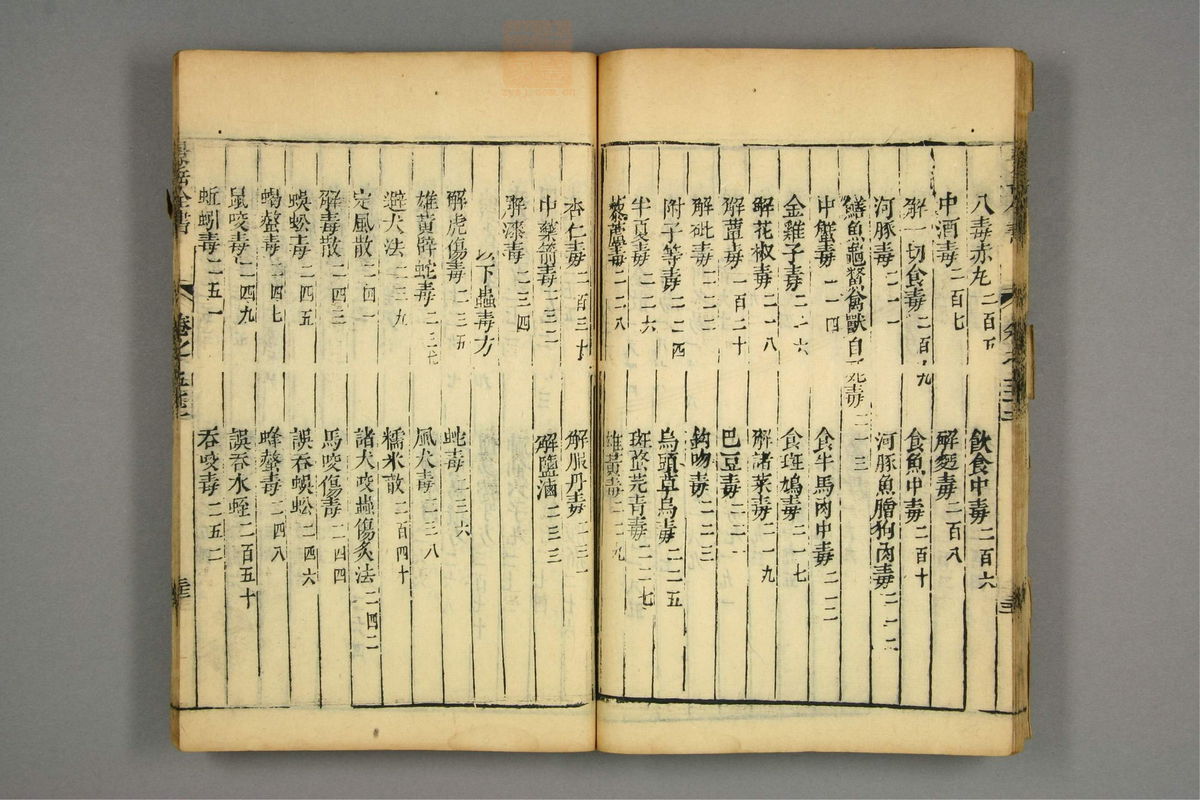 八毒赤丸二百五
飲食中毒二百六
中酒毒二百七
解麪毒二百八
解一切食毒二百九
食魚中毒二百十
河豚毒二一一
河豚魚膾狗肉毒二一二
鱔魚龜鱉禽獸自死毒二一三
中蟹毒二一四
食牛馬肉中毒二一五
金雞子毒二一六
食斑鳩毒二一七
解花椒毒二一八
解諸菜毒二一九
解蕈毒二百二十
巴豆毒二二一
解砒毒二二二
鈎吻毒二二三
附子等毒二二四
烏頭草烏毒二二五
半夏毒二二六
斑蝥芫青毒二二七
藜蘆毒二二八
雄黃毒二二九
杏仁毒二百三十
解服丹毒二三一
中藥箭毒二三二
解鹽滷二三三
解漆毒二三四
以下蟲毒方
解虎傷毒二三五
蛇毒二三六
雄黃辟蛇毒二三七
風犬毒二三八
避犬法二三九
糯米散二百四十
定風散二四一
諸犬咬蟲傷灸法二四二
解毒散二四三
馬咬傷毒二四四
蜈蚣毒二四五
誤吞蜈蚣二四六
蝎螫毒二四七
蜂螫毒二四八
鼠咬毒二四九
誤吞水蛭二百五十
蚯蚓毒二五一
吞咬毒二五二
景岳全書